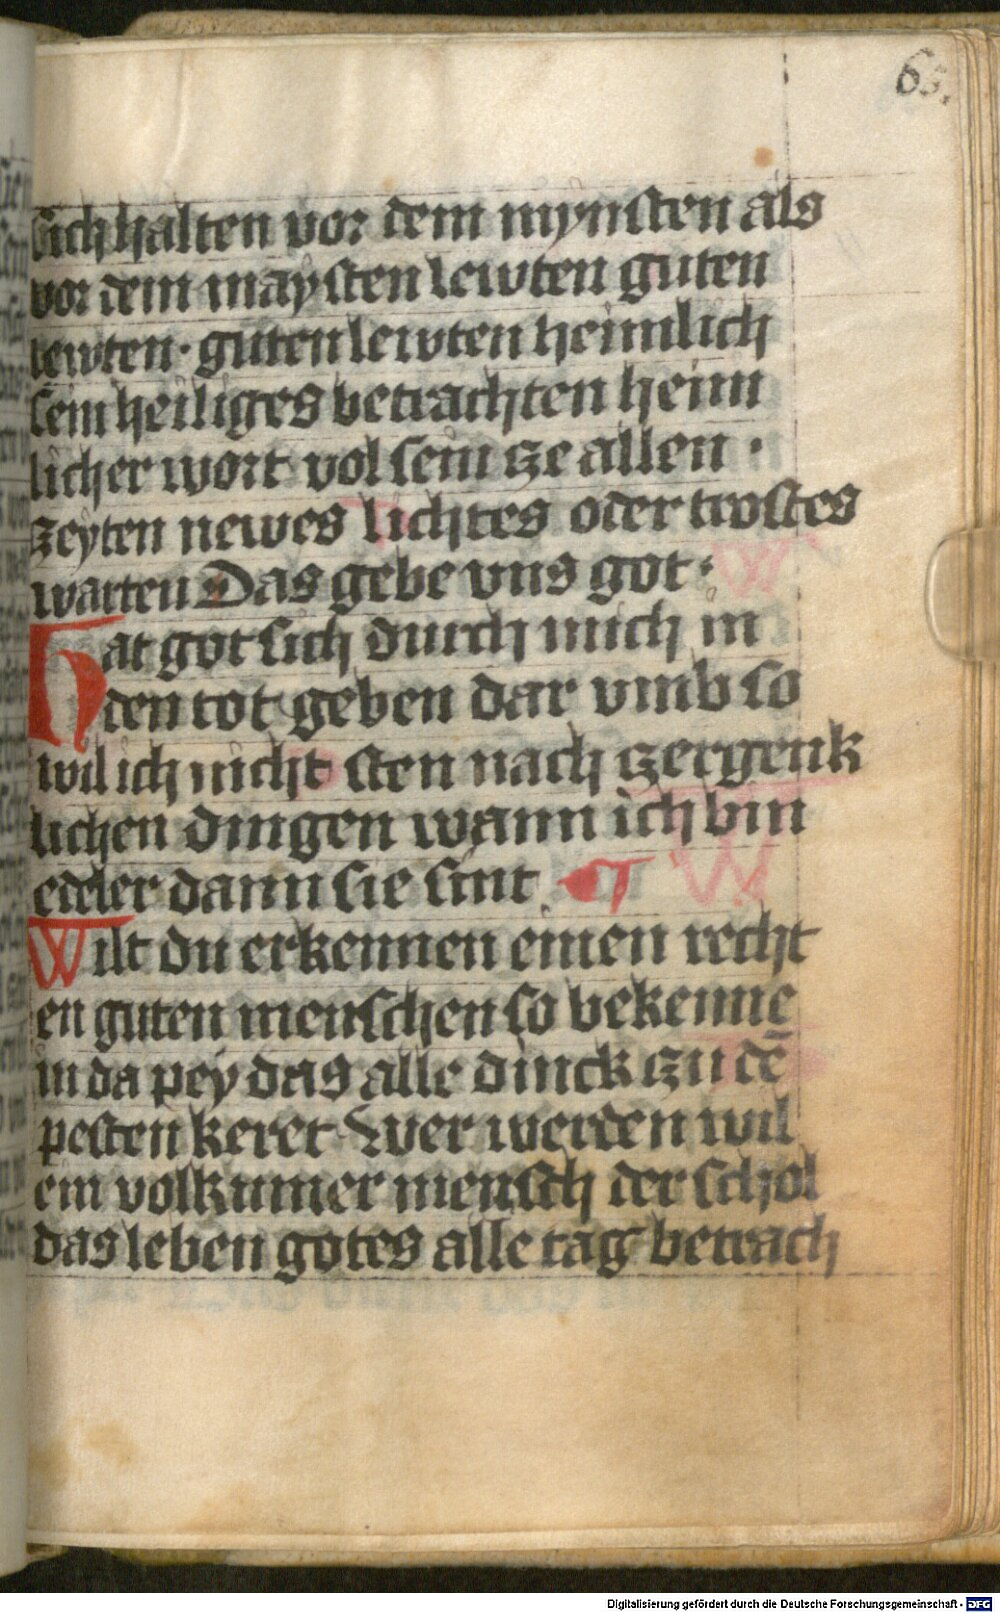 65.
sich halten vor dem mynsten als
vor dem maysten lewten guten
lewten · guten lewten heimlich
sein heiliges betrachten heim
licher wort vol sein ze allen ·
zeyten newes lichtes oder trostes
warten Das gebe vns got ·
Hat got sich durch mich in
den tot geben dar vmb so
wil ich nicht sten nach zergenk
lichen dingen wann ich bin
edeler dann sie sint ¶
Wilt du erkennen einen recht
en guten menschen so bekenne
in da pey das alle dinck zu dē
pesten keret Wer werden wil
ein volkumer mensch der schol
das leben gotes alle tag betrach
Digitalisierung gefördert durch die Deutsche Forschungsgemeinschaft - DFG